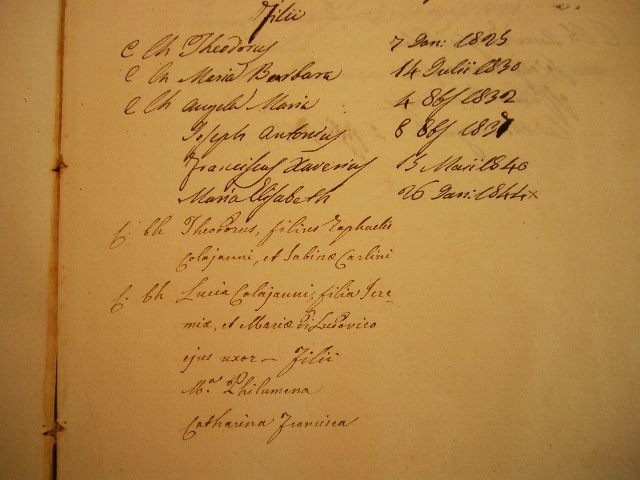 Filii
C Ch Theodorus 7 Jan: 1825
C Ch Maria Barbara 14 Julii 1830
C Ch Angela Maria 4 8bf 1832
Joseph Antonius 8 8bf 1837
Franciscus Xaverius 13 Maii 1840
Maria Elisabeth 26 Jan: 1844 x
C. Ch Theodorus, filius Raphaelis
Colajanni, et Sabinæ Carlini
C. Ch Lucia Colajanni, filia Jere-
miæ, et Mariæ di Ludovico
ejus uxor – Filii
M.a Philumena
Catharina Francisca